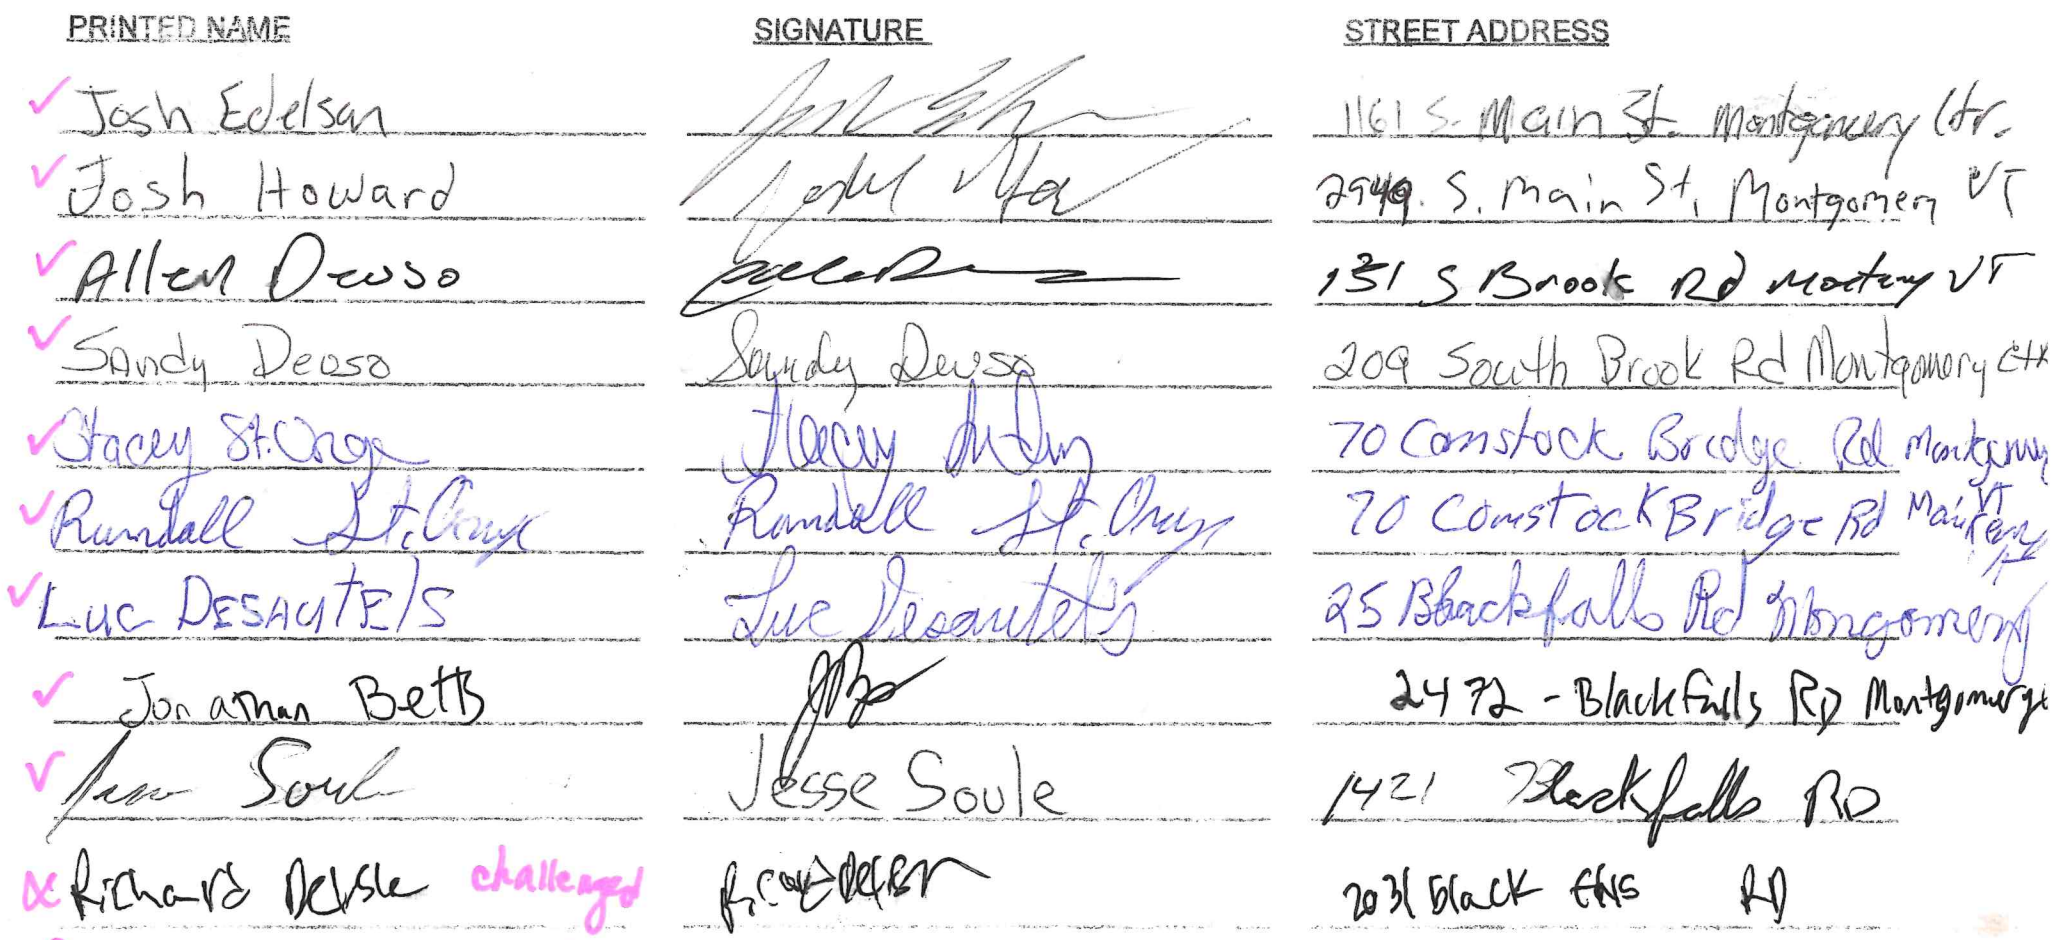 PRINTED NAME SIGNATURE STREET ADDRESS
Josh Edelsan 1161 S. Main St. Montgomery Ctr.
Josh Howard 2949 S. Main St, Montgomery VT
Allen Deuso S Brook Rd VT
Sandy Deuso Sandy Deuso 209 South Brook Rd Montgomery Ctr
Stacey St. Onge Stacey 70 Comstock Bridge Rd Montgomery
Randall St. Onge Randall St. Onge 70 Comstock Bridge Rd VT
Luc DESAUTElS Luc Desautels 25 Blackfalls Rd Mongomery
Jonathan Betts 2472 - Blackfalls RD Montgomery
Soule Jesse Soule 1421 Blackfalls RD
Richard Delisle challenged 2031 black RD